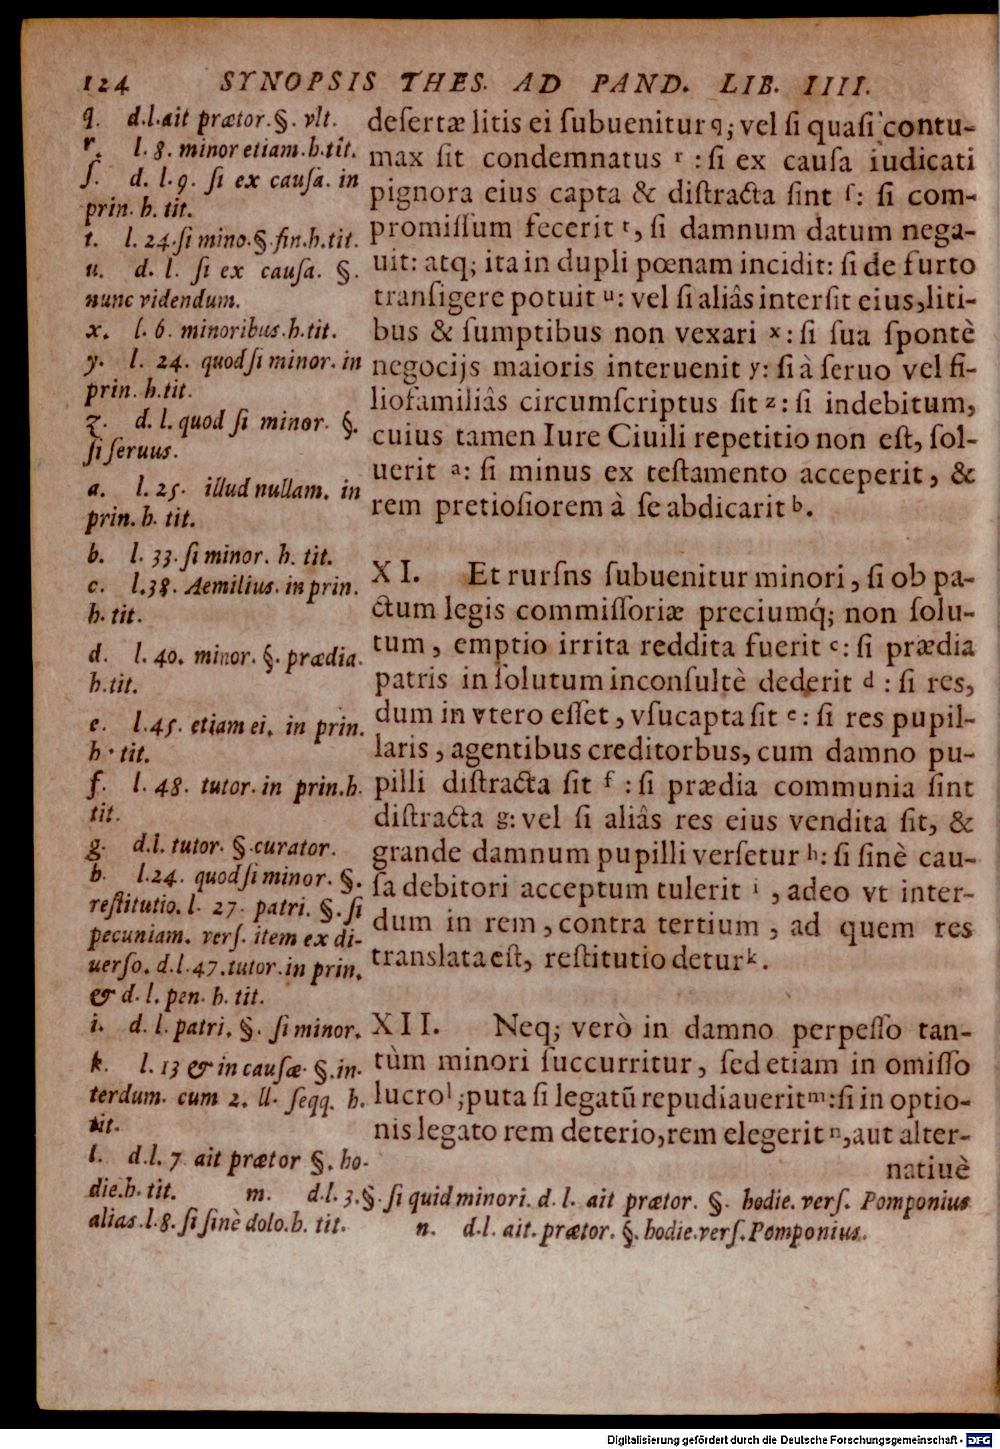 124 SYNOPSIS THES. AD PAND. LIB. IIII.
deſertæ litis ei ſubuenitur q; vel ſi quaſi contu-
max ſit condemnatus r : ſi ex cauſa iudicati
pignora eius capta & diſtracta ſint ſ: ſi com-
promiſſum fecerit t, ſi damnum datum nega-
uit: atq; ita in dupli pœnam incidit: ſi de furto
tranſigere potuit u: vel ſi aliâs interſit eius, liti-
bus & ſumptibus non vexari x: ſi ſua ſpontè
negocijs maioris interuenit y: ſi à ſeruo vel fi-
liofamiliâs circumſcriptus ſit z: ſi indebitum,
cuius tamen Iure Ciuili repetitio non eſt, ſol-
uerit a: ſi minus ex teſtamento acceperit, &
rem pretioſiorem à ſe abdicarit b.
XI. Et rurſns ſubuenitur minori, ſi ob pa-
ctum legis commiſſoriæ preciumq́; non ſolu-
tum, emptio irrita reddita fuerit c: ſi prædia
patris in ſolutum inconſultè dederit d : ſi res,
dum in vtero eſſet, vſucapta ſit e: ſi res pupil-
laris, agentibus creditorbus, cum damno pu-
pilli diſtracta ſit f : ſi prædia communia ſint
diſtracta g: vel ſi aliâs res eius vendita ſit, &
grande damnum pupilli verſetur h: ſi ſinè cau-
ſa debitori acceptum tulerit i , adeo vt inter-
dum in rem, contra tertium, ad quem res
translata eſt, reſtitutio detur k.
XII. Neq; verò in damno perpeſſo tan-
tùm minori ſuccurritur, ſed etiam in omiſſo
lucro l; puta ſi legatũ repudiauerit m: ſi in optio-
nis legato rem deterio, rem elegerit n, aut alter-
natiuè
q. d.l. ait prætor. §. vlt.
r. l. 8. minor etiam. h. tit.
ſ. d. l. 9. ſi ex cauſa. in
prin. h. tit.
t. l. 24. ſi mino. §. fin. h. tit.
u. d. l. ſi ex cauſa. §.
nunc videndum.
x. l. 6. minoribus. h. tit.
y. l. 24. quod ſi minor. in
prin. h. tit.
z. d. l. quod ſi minor. §.
ſi ſeruus.
a. l. 25. illud nullam. in
prin. h. tit.
b. l. 33. ſi minor. h. tit.
c. l. 38. Aemilius. in prin.
h. tit.
d. l. 40. minor. §. prædia.
h. tit.
e. l. 45. etiam ei. in prin.
h. tit.
f. l. 48. tutor. in prin. h.
tit.
g. d.l. tutor. §. curator.
h. l. 24. quod ſi minor. §.
reſtitutio. l. 27. patri. §. ſi
pecuniam. verſ. item ex di-
uerſo. d. l. 47. tutor. in prin.
& d. l. pen. h. tit.
i. d. l. patri. §. ſi minor.
k. l. 13 & in cauſæ. §. in-
terdum. cum 2. ll. ſeqq. h.
tit.
l. d.l. 7 ait prætor §. ho-
die. h. tit. m. d.l. 3. §. ſi quid minori. d. l. ait prætor. §. hodie. verſ. Pomponius
alias. l. 8. ſi ſinè dolo. h. tit. n. d.l. ait. prætor. §. hodie. verſ. Pomponius.
Digitalisierung gefördert durch die Deutsche Forschungsgemeinschaft - DFG